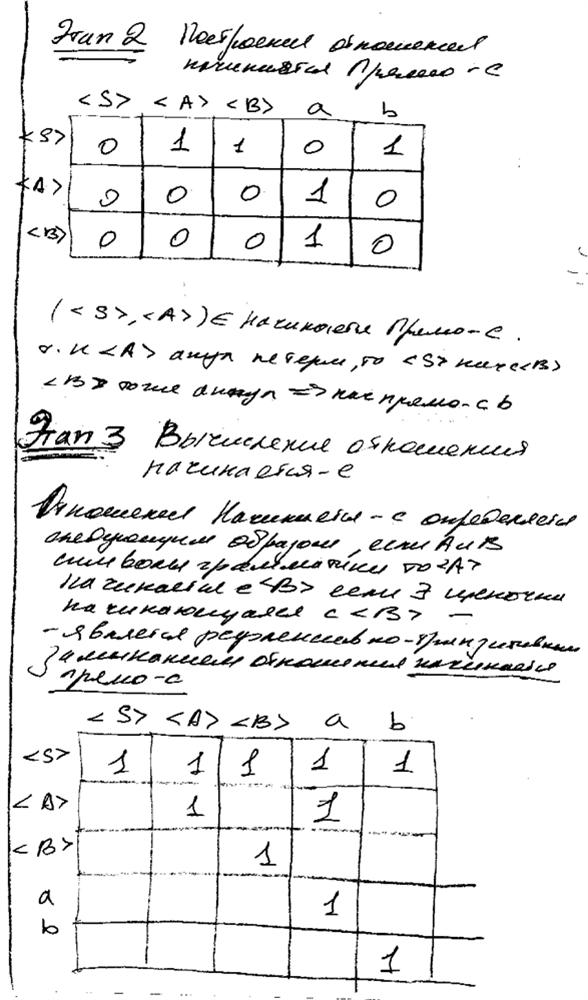 Этап 2 Построения отношения
начинается Прямо-с
<S> <A> <B> a b
<S> 0 1 1 0 1
<A> 0 0 0 1 0
<B> 0 0 0 1 0
(<S>, <A>) ∈ Начинается Прямо-с.
т.к <A> аннул нетерм, то <S> нач с <B>
<B> тоже аннул => нач прямо-с b
Этап 3 Вычисление отношения
начинается-с
Отношения Начинается-с определяется
следующим образом, если A и B
символы грамматики то <A>
начинается с <B> если ∃ цепочки
начинающаяся с <B> —
- является рефлексивно-транзитивным
замыканием отношения начинается
прямо-с
<S> <A> <B> a b
<S> 1 1 1 1 1
<A> 1 1
<B> 1
a 1
b 1